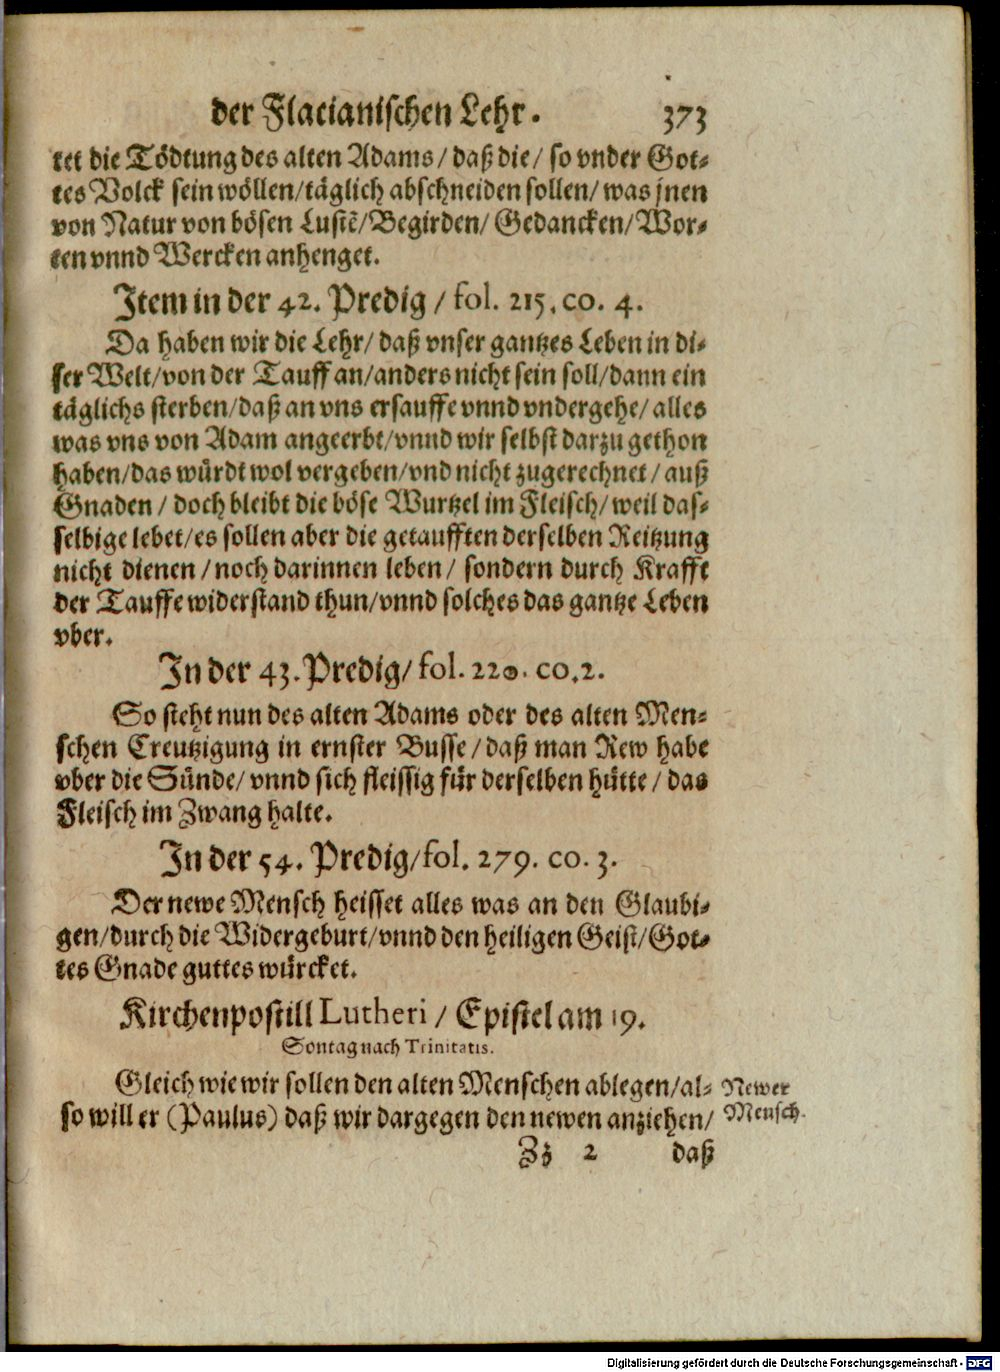 der Flacianischen Lehr. 373
tet die Tödtung des alten Adams/ daß die/ so vnder Got-
tes Volck sein wöllen/täglich abschneiden sollen/ was jnen
von Natur von bösen Lustẽ/Begirden/ Gedancken/ Wor-
ten vnnd Wercken anhenget.
Item in der 42. Predig / fol. 215. co. 4.
Da haben wir die Lehr/ daß vnser gantzes Leben in di-
ser Welt/von der Tauff an/anders nicht sein soll/dann ein
täglichs sterben/daß an vns ersauffe vnnd vndergehe/ alles
was vns von Adam angeerbt/vnnd wir selbst darzu gethon
haben/das würdt wol vergeben/vnd nicht zugerechnet / auß
Gnaden / doch bleibt die böse Wurtzel im Fleisch/ weil das-
selbige lebet/es sollen aber die getaufften derselben Reitzung
nicht dienen / noch darinnen leben/ sondern durch Krafft
der Tauffe widerstand thun/vnnd solches das gantze Leben
vber.
In der 43. Predig/ fol. 220. co.2.
So steht nun des alten Adams oder des alten Men-
schen Creutzigung in ernster Busse/ daß man Rew habe
vber die Sünde/ vnnd sich fleissig für derselben hütte / das
Fleisch im Zwang halte.
In der 54. Predig/fol. 279. co. 3.
Der newe Mensch heisset alles was an den Glaubi-
gen/durch die Widergeburt/vnnd den heiligen Geist/Got-
tes Gnade guttes würcket.
Kirchenpostill Lutheri / Epistel am 19.
Sontag nach Trinitatis.
Gleich wie wir sollen den alten Menschen ablegen/al-
so will er (Paulus) daß wir dargegen den newen anziehen/
Newer
Mensch.
Zz 2 daß
Digitalisierung gefördert durch die Deutsche Forschungsgemeinschaft - DFG